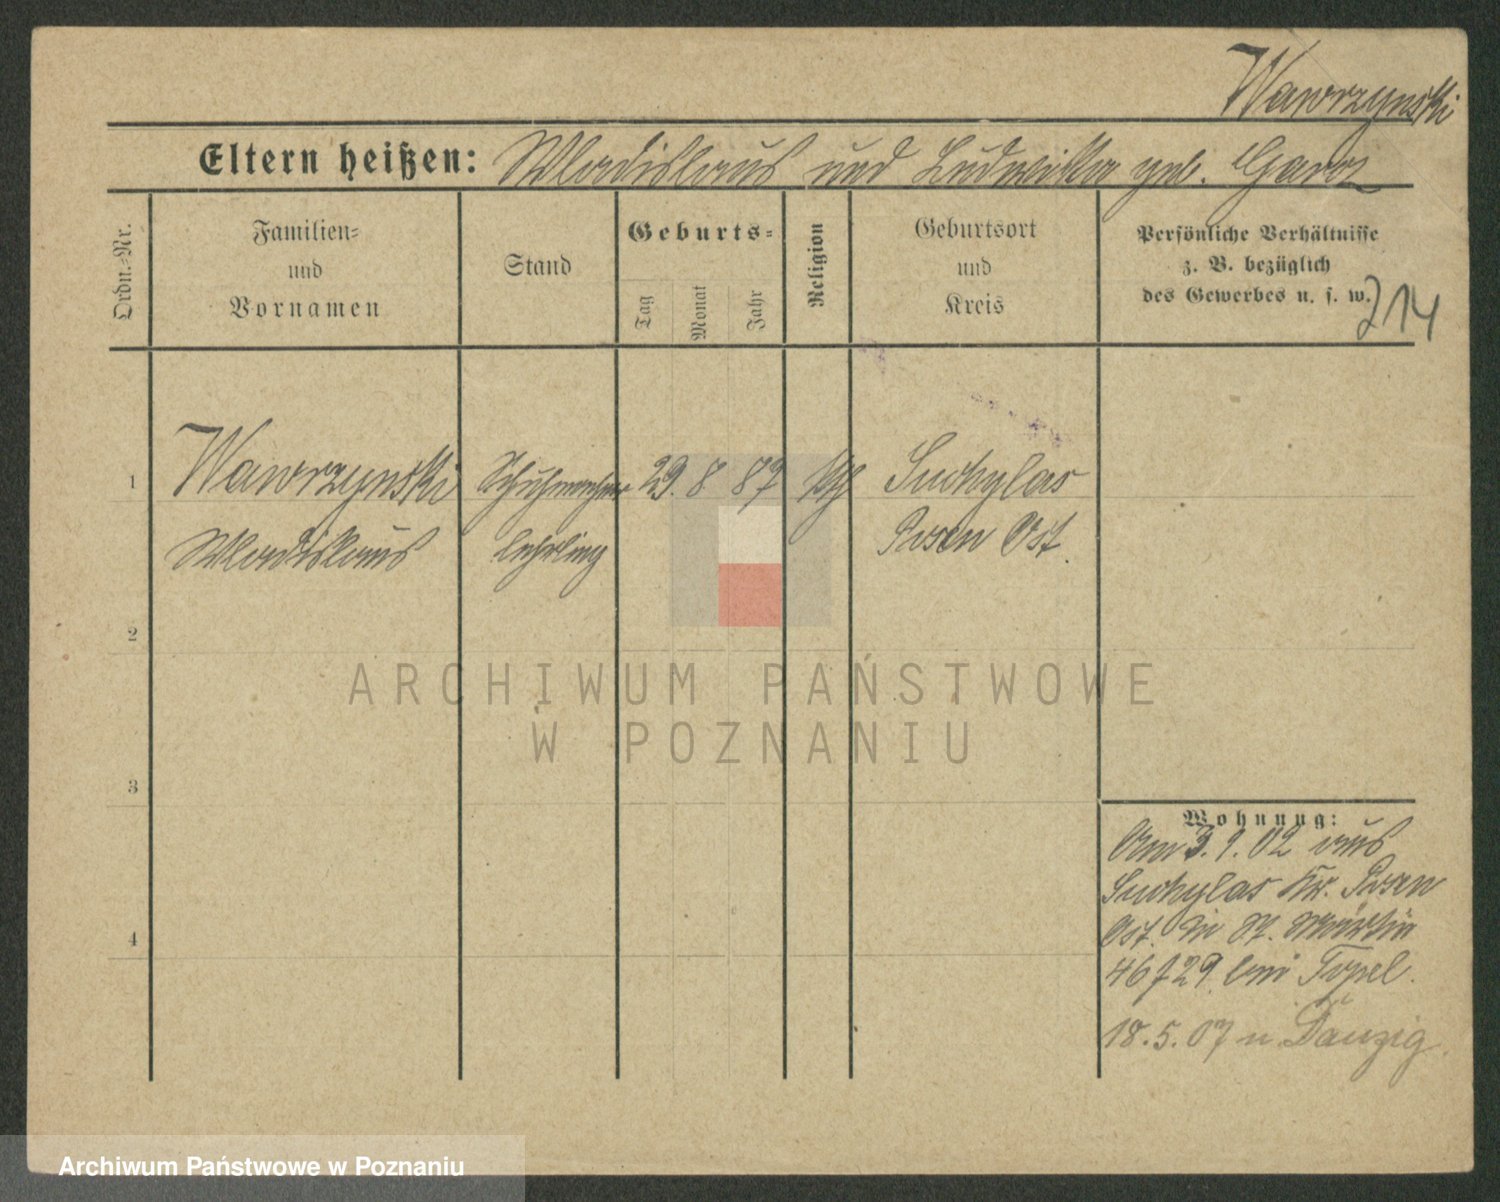 Wawrzynski
Eltern heißen: Wladislaus und Ludwika geb.
Ordn.-Nr.
Familien-
und
Vornamen
Stand
Geburts-
Tag
Monat
Jahr
Religion
Geburtsort
und
Kreis
Persönliche Verhältnisse
z. B. bezüglich
des Gewerbes u. s. w.
214
1
Wawrzynski Schuhmacher 29. 8 87 kth Suchylas
Wladislaus lehrling Posen Ost.
2
3
4
Wohnung:
Am 3. 1. 02 aus
Suchylas Kr. Posen
Ost. in St. Martin
46/29 bei Topel.
18. 5. 07 n. Danzig.
ARCHIWUM PAŃSTWOWE
W POZNANIU
Archiwum Państwowe w Poznaniu